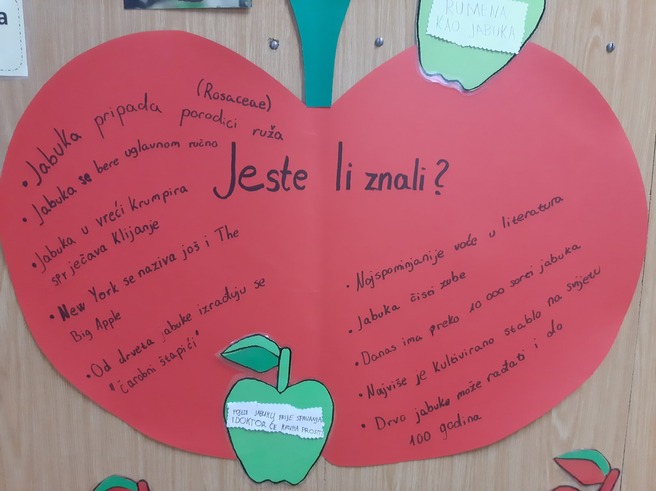 RUMENA
KAO JABUKA
Jeste li znali?
• Jabuka pripada (Rosaceae)
porodici ruža
• Jabuka se bere uglavnom ručno
• Jabuka u vreći Krumpira
sprječava Klijanje
• New York se naziva još i The
Big Apple
• Od drveta jabuke izrađuju se
"čarobni štapići"
• Najspominjanije voće u literatura
• Jabuka čisti zube
• Danas ima preko 10 000 sorti jabuka
• Najviše je kultivirano stablo na svijetu
• Drvo jabuke može rađati i do
100 godina
JABUKU PRIJE SPAVANJA
I DOKTOR ĆE
a